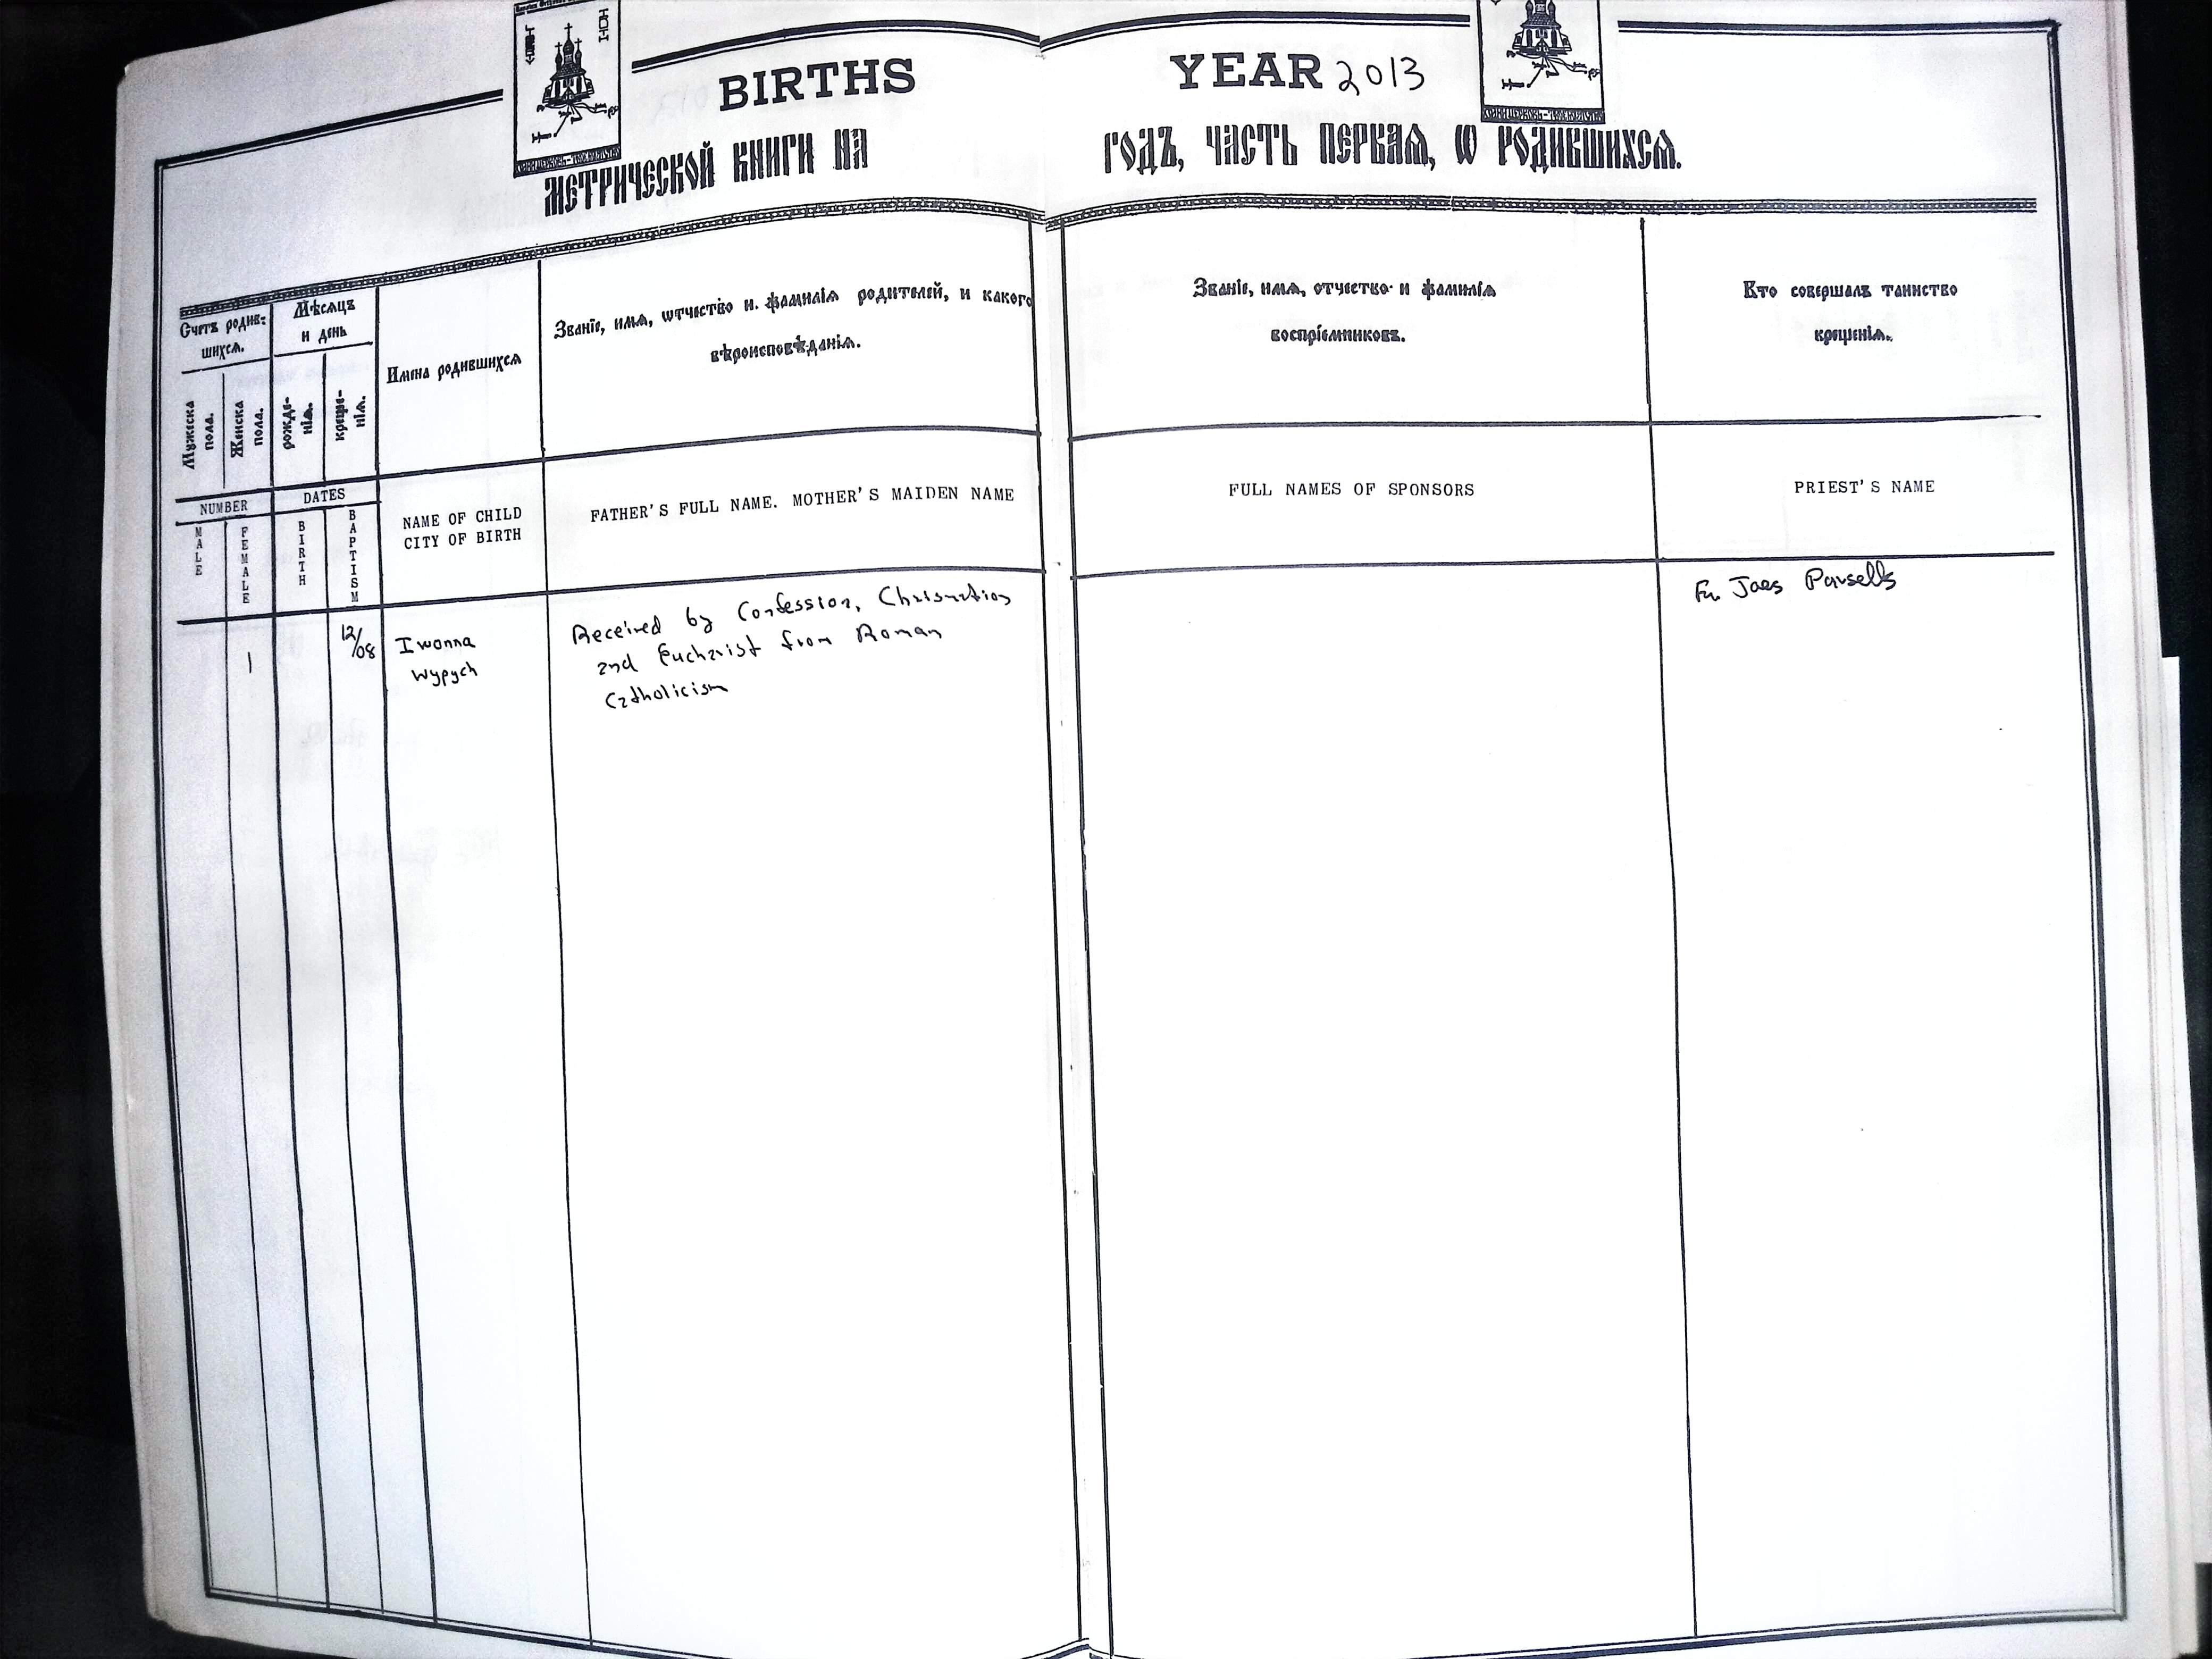 BIRTHS
YEAR 2013
МЕТРИЧЕСКОЙ КНИГИ НА
ГОДЪ, ЧАСТЬ ПЕРВАѦ, Ѡ РОДИВШИХСѦ.
Счетъ родив-
шихсѧ.
Мѣсяцъ
и день
Мужеска
пола.
Женска
пола.
рожде-
нїѧ.
креще-
нїѧ.
Имена родившихсѧ
Званїе, имѧ, ѡтчество и. фамилїѧ родителей, и какого
вѣроисповѣданїѧ.
Званїе, имѧ, отчество и фамилїѧ
воспрїемниковъ.
Кто совершалъ таинство
крещенїѧ.
NUMBER
DATES
MALE
FEMALE
BIRTH
BAPTISM
NAME OF CHILD
CITY OF BIRTH
FATHER'S FULL NAME. MOTHER'S MAIDEN NAME
FULL NAMES OF SPONSORS
PRIEST'S NAME
1
12/08
Iwonna
Wypych
Received by Confession, Chrismation
and Eucharist from Roman
Catholicism
Fr. Jaes Parsells